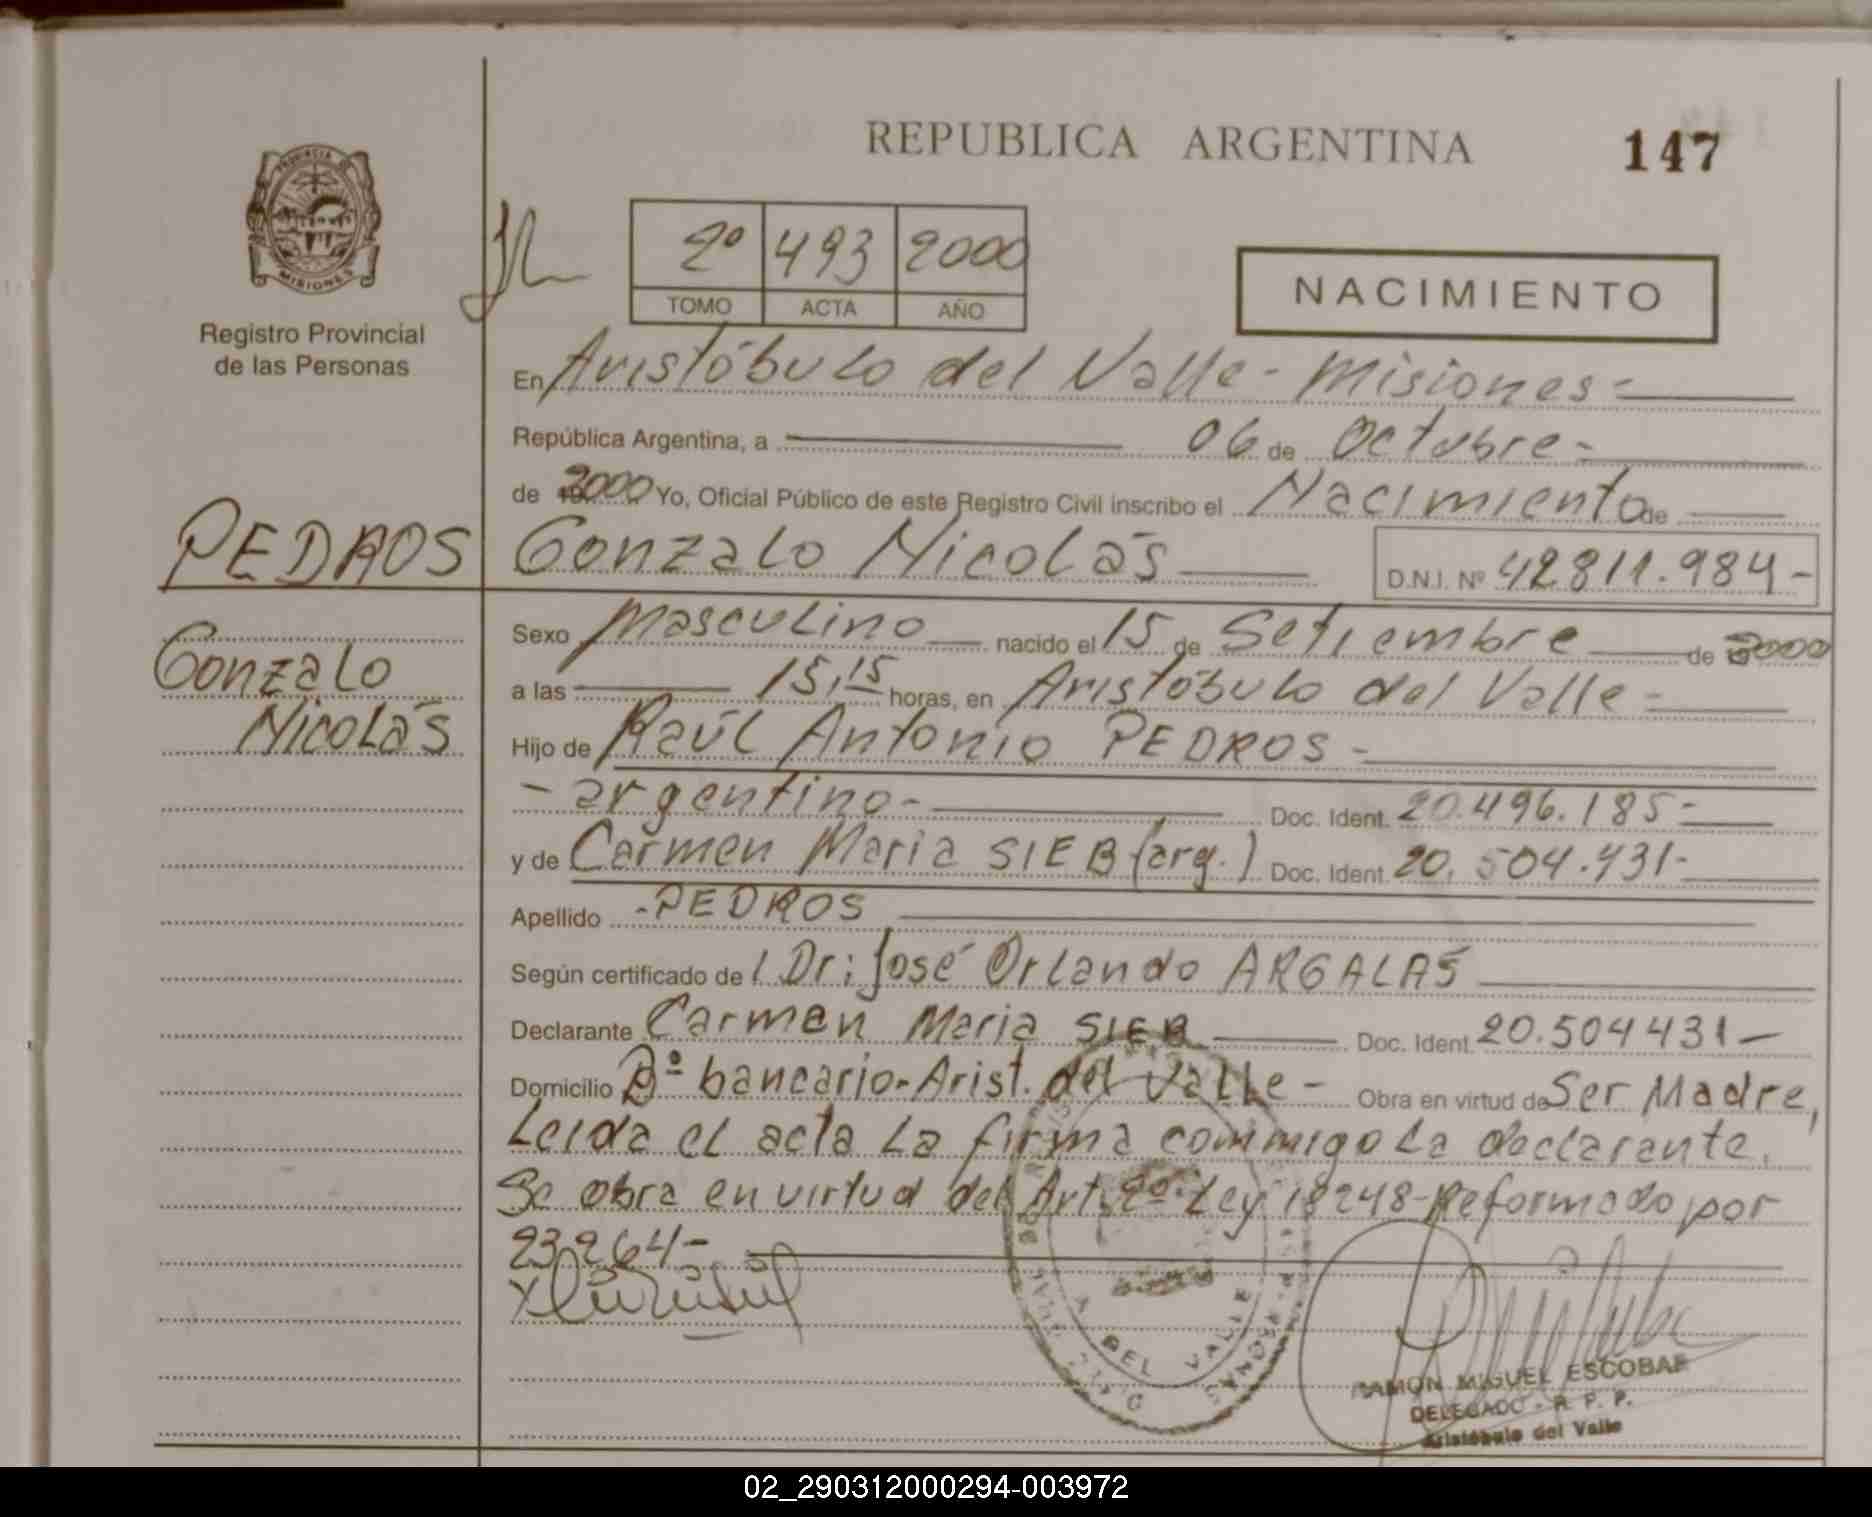 REPUBLICA ARGENTINA
147
PROVINCIA
MISIONES
Registro Provincial
de las Personas
2º 493 2000
TOMO ACTA AÑO
NACIMIENTO
En Aristóbulo del Valle - Misiones -
República Argentina, a 06 de Octubre -
de 2000 Yo, Oficial Público de este Registro Civil inscribo el Nacimiento de
PEDROS Gonzalo Nicolás D.N.I. Nº 42811.984-
Gonzalo
Nicolás
Sexo Masculino nacido el 15 de Setiembre de 2000
a las 15,15 horas, en Aristóbulo del Valle -
Hijo de Raúl Antonio PEDROS -
- argentino - Doc. Ident. 20.496.185-
y de Carmen Maria SIEB (arg.) Doc. Ident. 20.504.431-
Apellido -PEDROS
Según certificado de l Dr: José Orlando ARGALAS
Declarante Carmen Maria SIEB Doc. Ident. 20.504431-
Domicilio Bº bancario-Arist. del Valle - Obra en virtud de Ser Madre,
Leida el acta La firma commigo La declarante.
Se obra en virtud del Art. 2º- Ley 18248-Reformado por
23264-
DEL VALLE
RAMON MIGUEL ESCOBAR
DELEGADO - R. P. P.
Aristóbulo del Valle
02_290312000294-003972